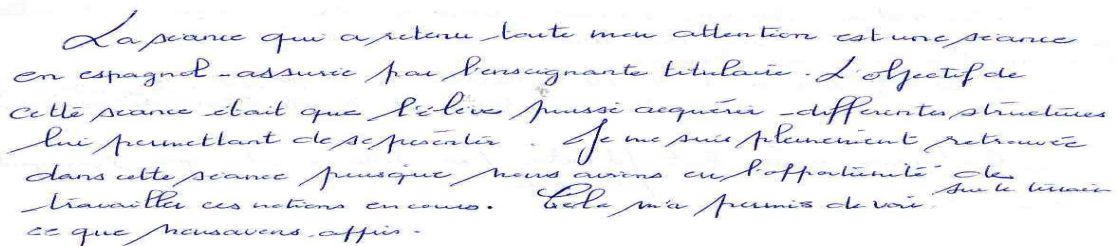 La séance qui a retenu toute mon attention est une séance
en espagnol assurée par l'enseignante titulaire. L'objectif de
cette séance était que l'élève puisse acquérir différentes structures
lui permettant de se présenter. Je me suis pleinement retrouvée
dans cette séance puisque nous avions eu l'opportunité de
travailler ces notions en cours. Cela m'a permis de voir sur le terrain
ce que nous avons appris.